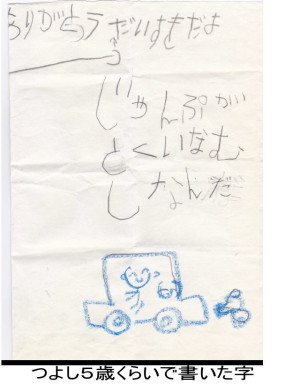 ありがとう だいすきだよ
う
じゃんぷが
とくいなむ
しなんだ
つよし5歳くらいで書いた字